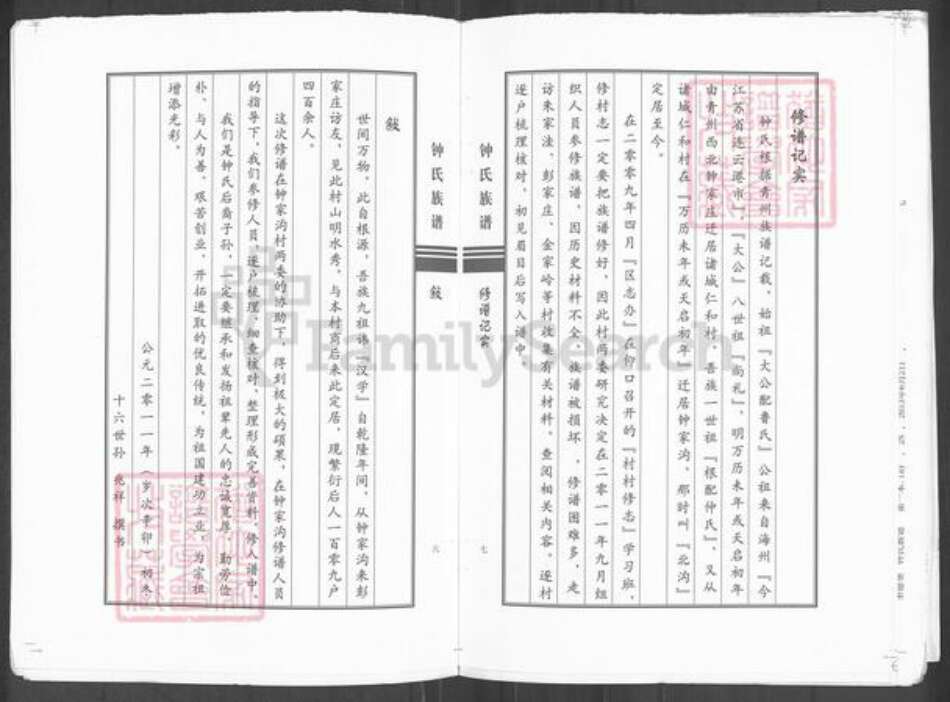 修谱记实
钟氏根据青州族谱记载，始祖『大公配鲁氏』公祖来自海州『今
江苏省连云港市』，『大公』八世祖『尚礼』，明万历末年或天启初年
由青州西北钟家庄迁居诸城仁和村。吾族一世祖『根配仲氏』，又从
诸城仁和村在『万历末年或天启初年』迁居钟家沟，那时叫『北沟』
定居至今。
在二零零九年四月『区志办』在仰口召开的『村村修志』学习班，
修村志一定要把族谱修好，因此村两委研究决定在二零一一年九月组
织人员参修族谱，因历史材料不全，族谱被损坏，修谱困难多，走
访朱家洼、彭家庄、金家岭等村收集有关材料，查阅相关内容，逐村
逐户梳理核对，初见眉目后写入谱中。
钟氏族谱
修谱记实
七
钟氏族谱
叙
六
叙
世间万物，此自根源，吾族九祖讳『汉学』自乾隆年间，从钟家沟来彭
家庄访友，见此村山明水秀，与本村商后来此定居，现繁衍后人一百零九户
四百余人。
这次修谱在钟家沟村两委的协助下，得到极大的硕果，在钟家沟修谱人员
的指导下，我们参修人员，逐户梳理，细查核对，整理形成完善资料，修入谱中。
我们是钟氏后裔子孙，一定要继承和发扬祖辈先人的忠诚宽厚，勤劳俭
朴、与人为善、艰苦创业、开拓进取的优良传统，为祖国建功立业，为宗祖
增添光彩。
公元二零一一年（岁次辛卯）初冬
十六世孙 兆祥 撰书
FamilySearch